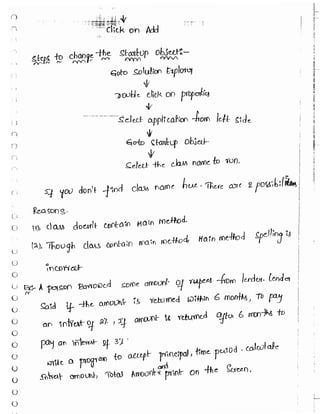 Click on Add
steps to change the Startup Objects:-
Goto Solution Explorer
Double click on properties
Select application from left side
Goto Startup object
Select the class name to run.
If you don't find class name here. There are 2 possibilities
Reasons:-
(1). class doesn't contain Main method.
(2). Though class contain main method, Main method spelling is
incorrect
Eg:- A person Borrowed some amount of rupees from lender. Lender
Said if the amount is returned within 6 months, To pay
an intrest of 2%, If amount is returned after 6 months to
pay an interest of 3%.
write a program to accept principal, time period. calculate
intrest amount, Total Amount and print on the screen.